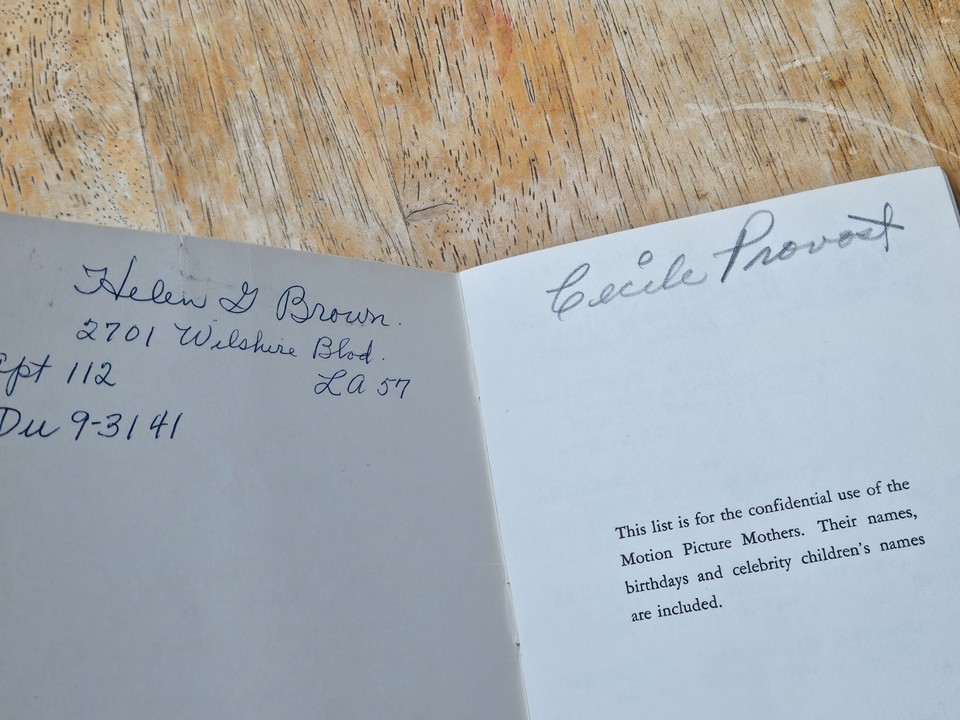 Helen G Brown.
2701 Wilshire Blvd.
Apt 112
LA 57
Du 9-3141
Cecile Provost
This list is for the confidential use of the
Motion Picture Mothers. Their names,
birthdays and celebrity children's names
are included.